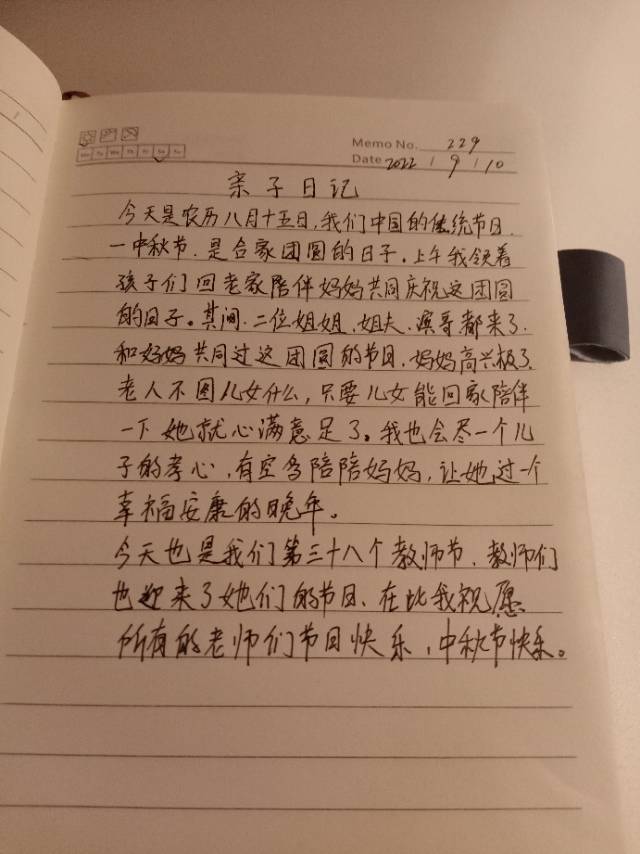 Memo No. 229
Mo Tu We Th Fr Sa Su
Date 2022 / 9 / 10
亲子日记
今天是农历八月十五日,我们中国的传统节日.
一中秋节.是合家团圆的日子.上午我领着
孩子们回老家陪伴妈妈共同庆祝这团圆
的日子。其间.二位姐姐.姐夫.滨哥都来了.
和妈妈共同过这团圆的节日.妈妈高兴极了.
老人不图儿女什么,只要儿女能回家陪伴
一下她就心满意足了。我也会尽一个儿
子的孝心,有空多陪陪妈妈,让她过一个
幸福安康的晚年。
今天也是我们第三十八个教师节.教师们
也迎来了她们的节日.在此我祝愿
所有的老师们节日快乐,中秋节快乐。